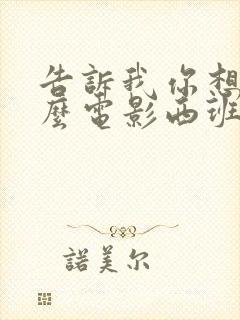 告訴我 你想
麼電影西班
諾美尔